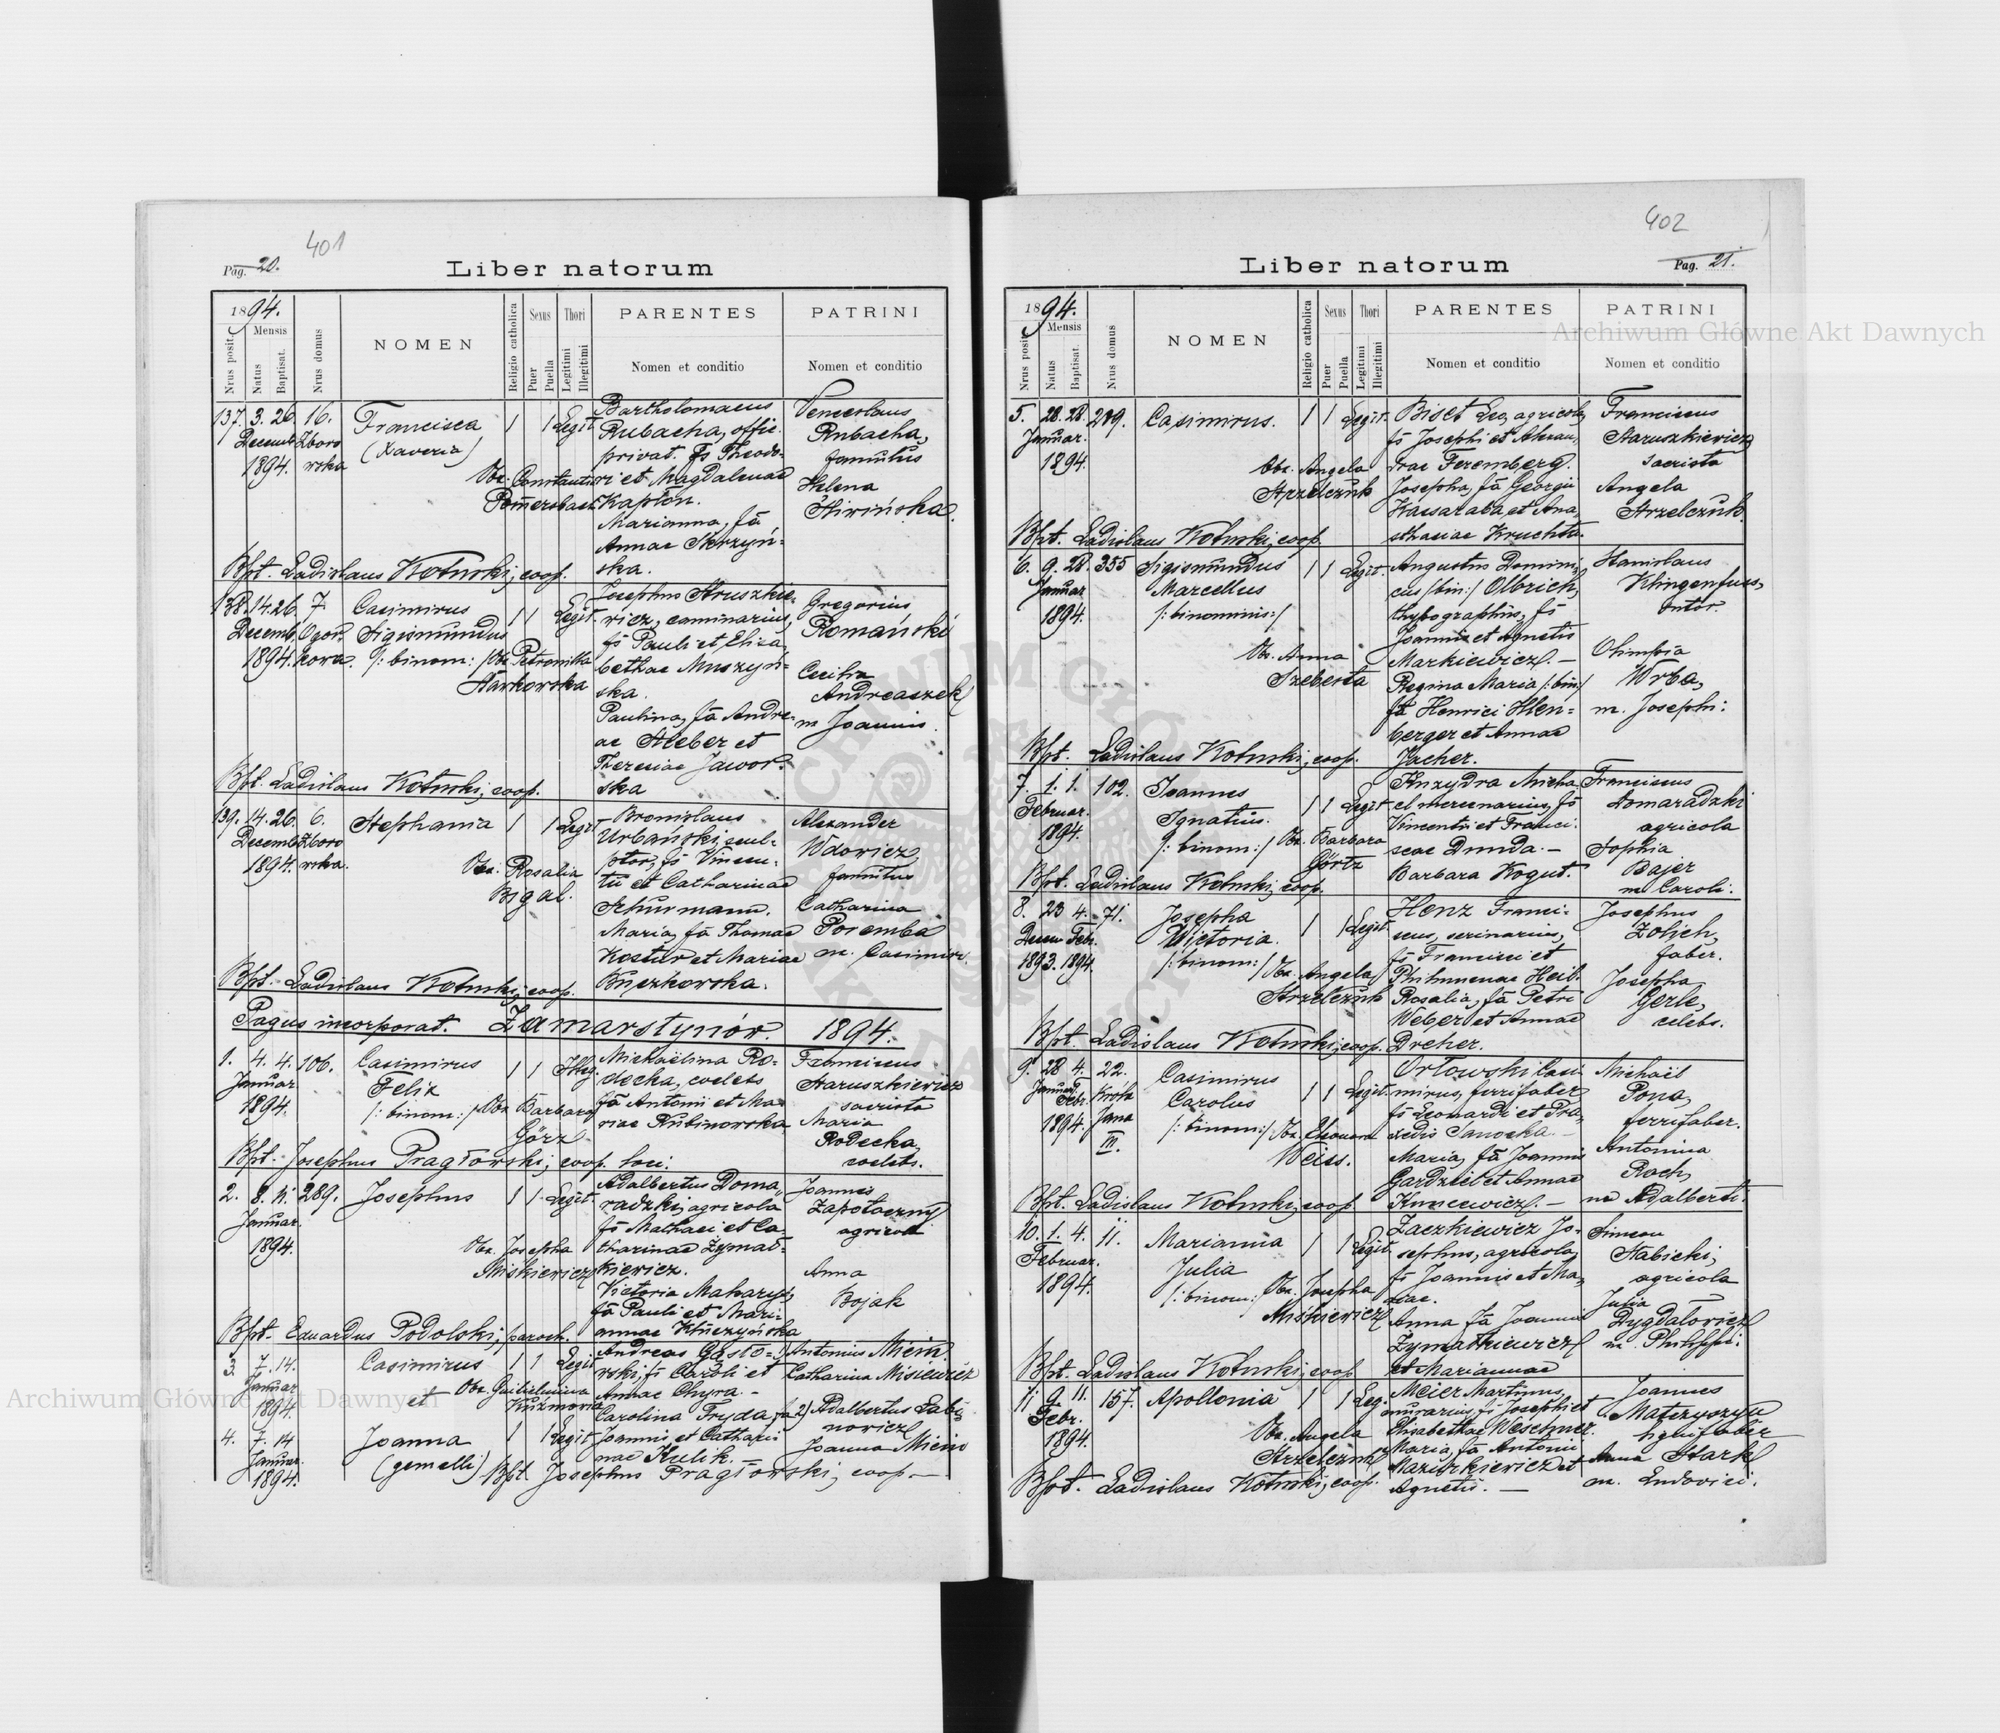 401
Pag. 20.
Liber natorum
1894.
Mensis
Nrus posit.
Natus
Baptisat.
Nrus domus
NOMEN
Religio catholica
Sexus
Puer
Puella
Thori
Legitimi
Illegitimi
PARENTES
Nomen et conditio
PATRINI
Nomen et conditio
137. 3. 26. 16.
Decemb. Zboro
1894. wska
Francisca
(Xaveria)
1 1 Legit.
Obs. Constantia
Pomersbach
Bartholomaeus
Rubacha, offic.
privat. fs Theodo-
ri et Magdalenae
Kapton.
Marianna, fa
Annae Skrzyń-
ska.
Venceslaus
Rubacha,
famulus
Helena
Bpt. Ladislaus Kotuski, coop.
138. 14. 26. 7
Decemb.
1894.
Casimirus
Sigismundus
/: binom: /
Obs. Petronilla
1 1 Legit.
Josephus Struszkie-
wicz, caminarius,
fs Pauli et Elisa-
bethae Muszyń-
ska.
Paulina, fa Andre-
ae Steber et
Theresiae Jawor-
ska
Gregorius
Romański
Cecilia
Andreaszek
m Joannis.
Bpt. Ladislaus Kotuski, coop.
139. 14. 26. 6.
Decemb. Zboro
1894. wska.
Stephania
1 1 Legit.
Obs. Rosalia
Bigal.
Bronislaus
Urbański, scul-
ptor, fs Vincen-
tii et Catharinae
Schürmann.
Maria, fa Thomae
Kostur et Mariae
Alexander
Wdowicz
famulus
Catharina
Poremba
m. Casimiri.
Bpt. Ladislaus Kotuski, coop.
Pagus incorporat. Zamarstynów. 1894.
1. 4. 4. 106.
Januar.
1894.
Casimirus
Felix
/: binom: /
Obs. Barbara
Görz
1 1 Illeg.
Michaëlina Ro-
decka, coelebs
fa Antonii et Ma-
riae Rubinowska
Franciscus
Staruszkiewicz
sacrista
Maria
Rodecka,
coelebs.
Bpt. Josephus Pragłowski, coop. loci.
2. 8. 11. 289.
Januar.
1894.
Josephus
1 1 Legit.
Obs. Josepha
Miśkiewicz
Adalbertus Doma-
radzki, agricola
fs Mathaei et Ca-
tharinae Żymad-
kiewicz.
Victoria Makarys,
fa Pauli et Mari-
annae Kluczyńska
Joannes
Zapotoczny
agricola
Anna
Bojak
Bpt. Eduardus Podolski, paroch.
3. 7. 14.
Januar.
1894.
Casimirus
et
Obs. Guilielmina
Kuźmowicz
1 1 Legit
4. 7. 14
Januar.
1894.
Joanna
(gemelli)
1 1 Legit
Andreas Gąsio-
wski, fs Caroli et
Annae Chyra. -
Carolina Fryda, fa
Joannis et Cathari-
nae Kulik. -
1) Antonius Micin.
Catharina Misiewicz
2) Adalbertus Sabi-
nowicz
Joanna Micin
Bpt. Josephus Pragłowski, coop. -
402
Liber natorum
Pag. 21.
1894.
Mensis
Nrus posit.
Natus
Baptisat.
Nrus domus
NOMEN
Religio catholica
Sexus
Puer
Puella
Thori
Legitimi
Illegitimi
PARENTES
Nomen et conditio
PATRINI
Nomen et conditio
5. 28. 28. 249.
Januar.
1894.
Casimirus.
1 1 Legit.
Obs. Angela
Strzelczuk
Biset Leo, agricola,
fs Josephi et Alexan-
drae Feremberg.
Josepha, fa Georgii
Kassaraba et Ana-
sthasiae Kruchta.
Franciscus
Staruszkiewicz
sacrista
Angela
Strzelczuk.
Bpt. Ladislaus Kotuski, coop.
6. 9. 28. 355
Januar
1894.
Sigismundus
Marcellus
/: binominis: /
1 1 Legit.
Obs. Anna
Szebesta
Augustus Domini-
cus /:bin:/ Olbrich,
thypographus, fs
Joannis et Agnetis
Markiewicz. -
Regina Maria /:bin:/
fa Henrici Illen-
berger et Annae
Jacher.
Stanislaus
Klingenfuss,
sutor.
Olimpia
Wrba,
m. Josephi:
Bpt. Ladislaus Kotuski, coop.
7. 1. 1. 102.
Februar.
1894.
Joannes
Ignatius.
/: binom: /
Obs. Barbara
Görtz
1 1 Legit
Knzydra Micha-
el mercenarius, fs
Vincentii et Franci-
scae Dunda. -
Barbara Kogut.
Franciscus
Domaradzki
agricola
Sophia
Bajer
m Caroli.
Bpt. Ladislaus Kotuski, coop.
8. 23 4. 71.
Decem Febr.
1893. 1894.
Josepha
Wictoria.
/: binom: /
Obs. Angela
Strzelczuk
1 1 Legit.
Henz Franci-
scus,
fs Francisci et
Philomenae Heil.
Rosalia, fa Petri
Weber et Annae
Dreher.
Josephus
Zolich,
faber.
Josepha
Gerle,
celebs.
Bpt. Ladislaus Kotuski, coop.
9. 28 4. 22.
Januar. Febr. Króla
1894. Jana
III.
Casimirus
Carolus
/: binom: /
Obs. Eleonora
Weiss.
1 1 Legit.
Orłowski Casi-
mirus, ferrifaber
fs Leonardi et Pra-
xedis Sanocka. -
Maria, fa Joannis
Gardziel et Annae
Kuncewicz. -
Michaël
Pona,
ferrifaber.
Antonina
Roch,
m Adalberti.
Bpt. Ladislaus Kotuski, coop
10. 1. 4. 11.
Februar.
1894.
Marianna
Julia
/: binom: /
Obs. Josepha
Miśkiewicz
1 1 Legit.
Zaczkiewicz Jo-
sephus, agricola,
fs Joannis et Ma-
riae.
Anna fa Joannis
Zymatkiewicz
et Mariannae
Simeon
Stabicki,
agricola
Julia
Dygdałowicz
m. Philippi.
Bpt. Ladislaus Kotuski, coop
11 9. 11. 157.
Febr.
1894.
Apollonia
1 1 Leg.
Obs. Angela
Strzelczuk
Meier Martinus,
murarius, fs Josephi et
Elisabethae Weschner.
Maria, fa Antonii
Mazurkiewicz et
Agnetis. -
Joannes
Matczyszyn
lignifaber
Anna Stark
m. Ludovici.
Bpt. Ladislaus Kotuski, coop.
Archiwum Główne Akt Dawnych
Archiwum Główne Akt Dawnych